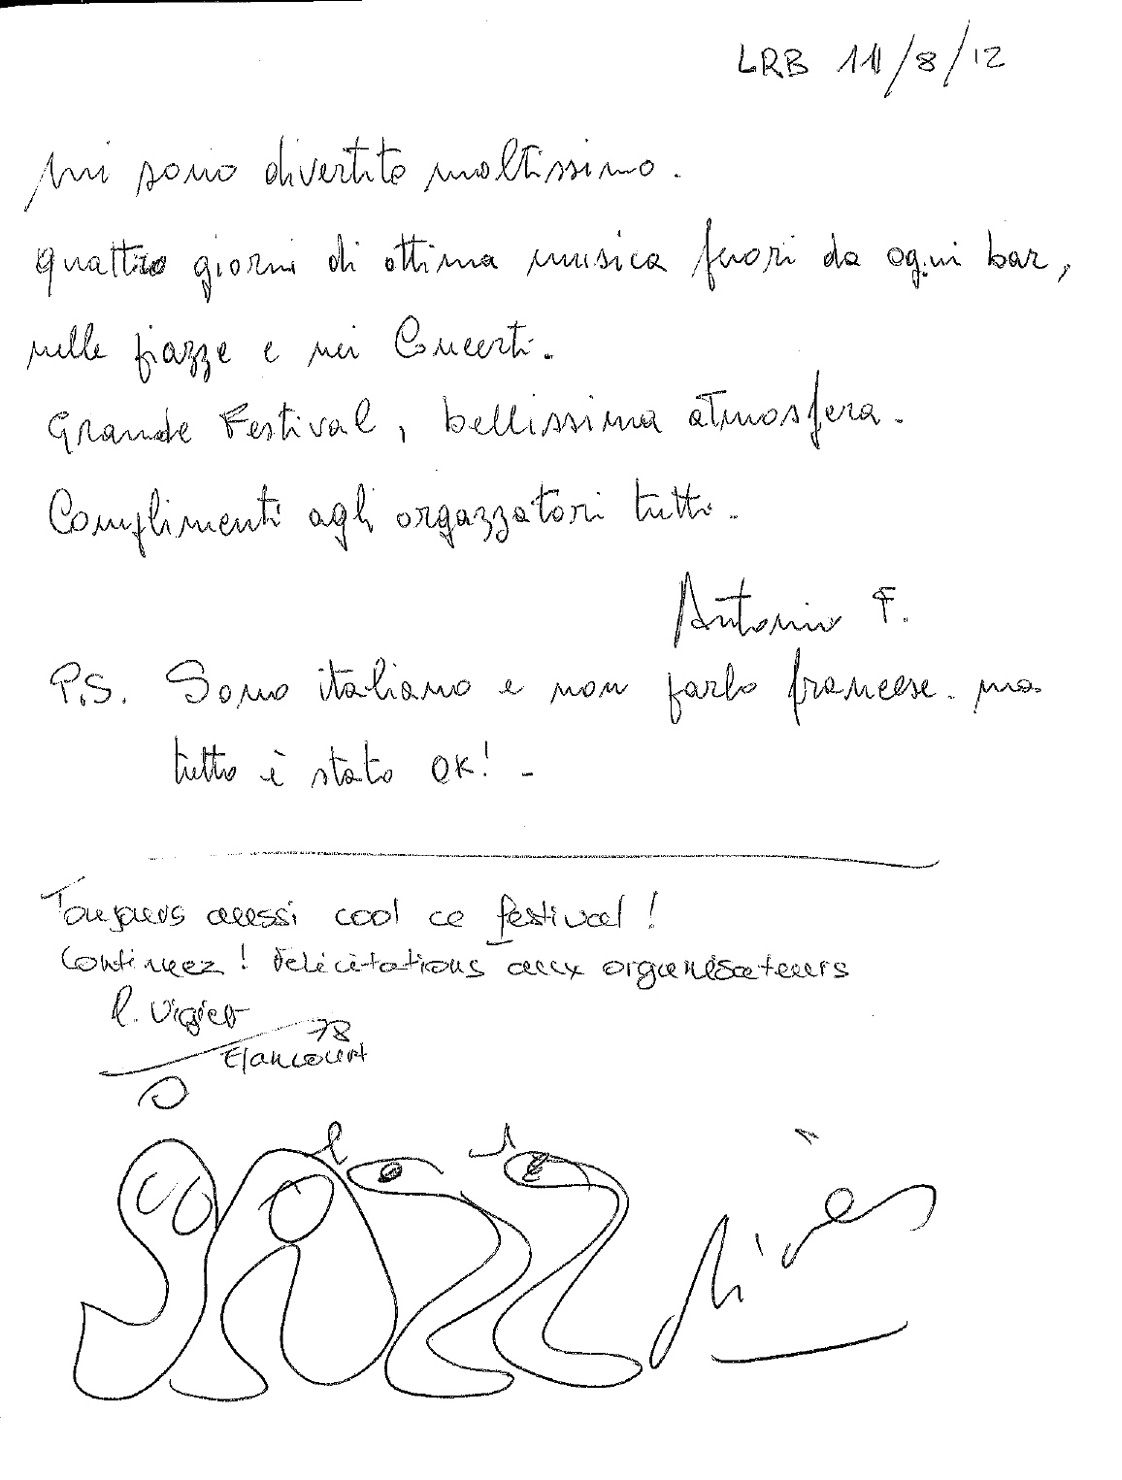 LRB 11/8/12
Mi sono divertito moltissimo.
quattro giorni di ottima musica fuori da ogni bar,
nelle piazze e nei Concerti.
Grande Festival, bellissima atmosfera.
Complimenti agli orgazzatori tutti.
Antonio F.
P.S. Sono italiano e non parlo francese. ma
tutto è stato OK! -
Toujours aussi cool ce festival !
Continuez ! Félicitations aux organisateurs
78
Elancourt
JAZZ